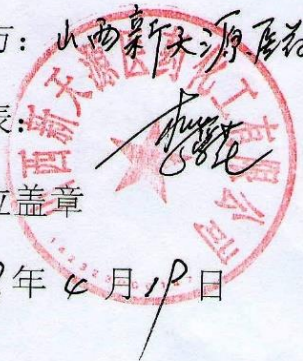 方：山西新天源医药
表：
位盖章
年4月19日
山西新天源医药化工有限公司